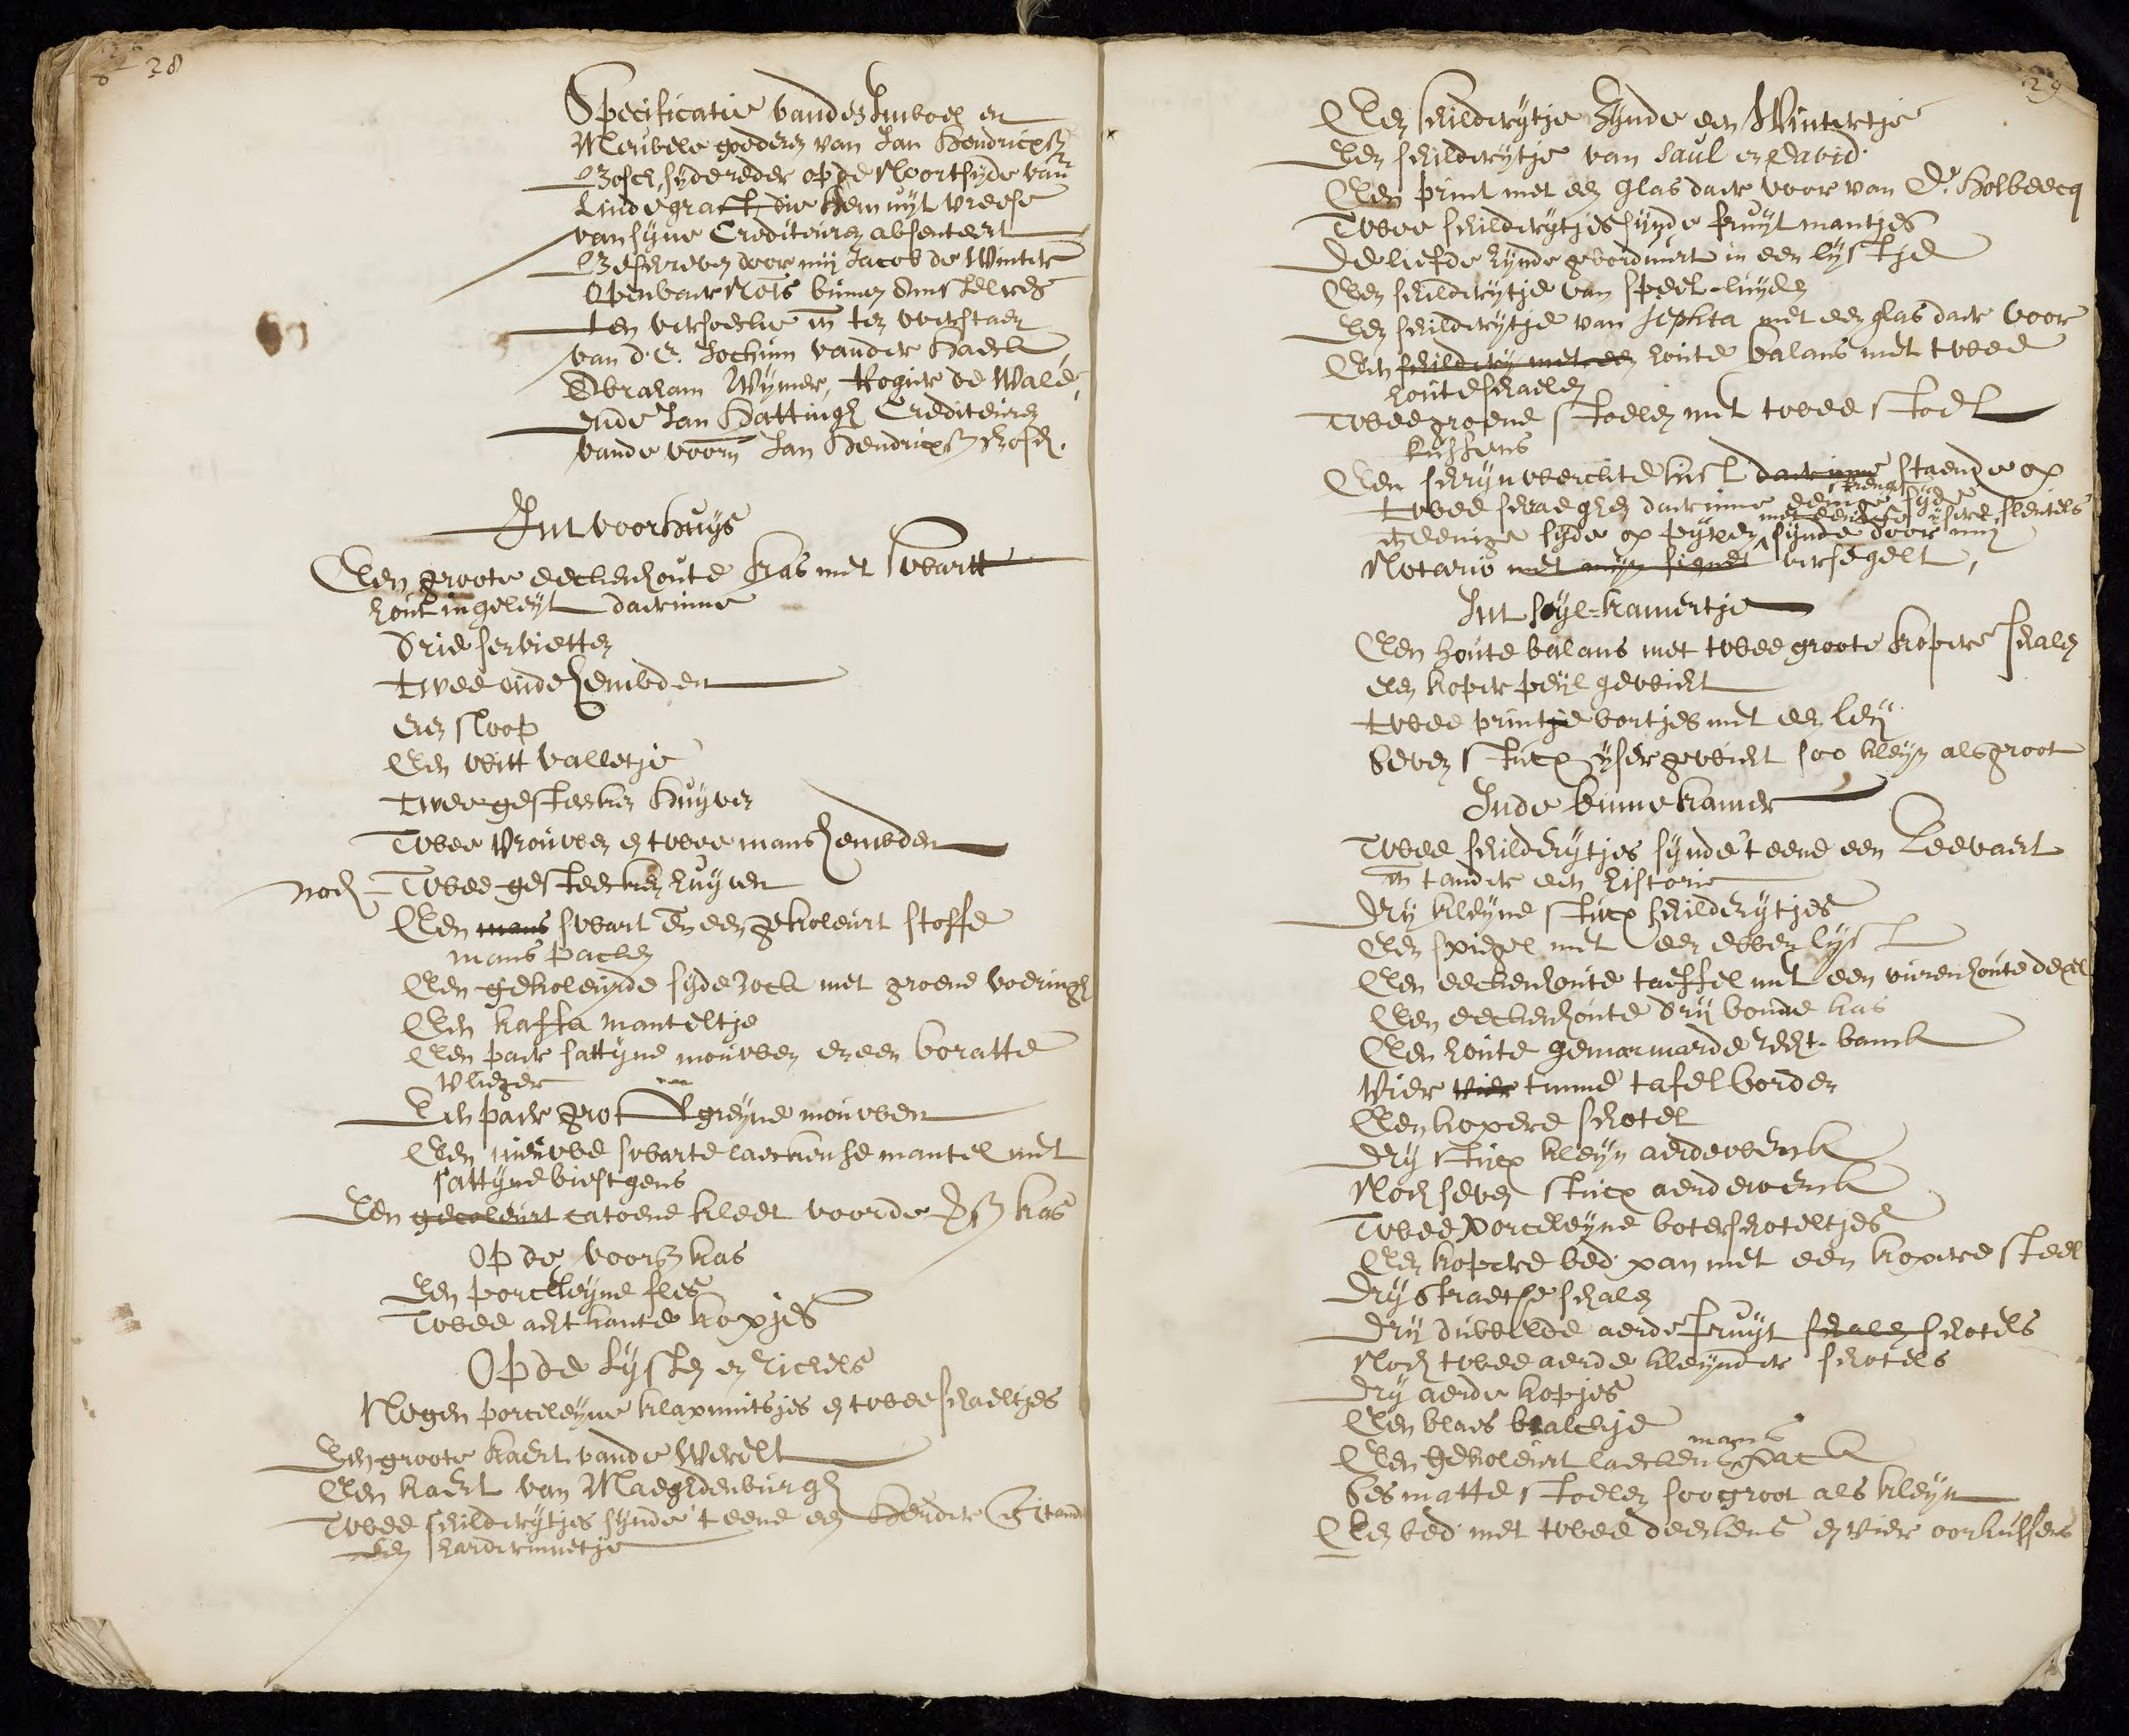 28
Specificatie vanden Inboel en
Meubele goederen van Jan Hendricxsz
Bosch, sydereder op de Noortsyde van
Lindegraft, die hem uyt vreese
van syne Crediteuren absenteert
Beschreven door mij Jacob de Winter
Openbaer Nots binnen Amstelred
ten versoecke en ten overstaen
van d'E. Jochim vander Haeck
Abraham Wymer, Rogier de Wale,
ende Jan Hattingh Crediteuren
vande voorn Jan Hendricxsz Bosch.
Int voorhuys
Een groote eeckenhoute kas met swartt
hout ingeleyt daerinne
Drie servietten
twee oude hembden
een sloop
Een witt valletje
twee gesteecken huyven
Twee vrouwen en twee manshembden
noch Twee gesteecken huyven
Een mans swart en een gekoleurt stoffe
mans packen
Een gekoleurde syde rock met groene voeringh
Een kaffa manteltje
Een paer sattyne mouwen en een boratte
vlieger
Een paer grof greyne mouwen
Een nieuwe swarte laeckense mantel met
sattyne biestgens
Een gecoleurt catoene kleet voorde dsz kas
Op de voorsz kas
Een porceleyne fles
Twee achtkante kopjes
Op de lysten en richels
Negen porceleyne klapmutsjes en twee schaeltjes
Een groote kaert vande Werelt
Een kaert van Maeghdenburgh
Twee schilderytjes synde 't eene een Herder En tander
een harderinnetje
29
Een schilderytje Zynde een Wintertje
Een schilderytje van Saul en David.
Een print met een glas daer voor van Dr. Holbeecq
Twee schilderytjes synde fruyt mantjes
De liefde synde geborduurt in een lystje
Een schilderytje van speel-luyden
Een schilderytje van Jephta met een glas daer voor
Een schildery met een houte balans met twee
houte schaelen
Twee groene stoelen met twee stoel
kussens
Een schrynwerckte kist daerinne staende op
twee schraeghen daerinne eenige streng syde
en eenige syde op pypen met eenige ysere sleutels synde door mij
Notario met myn signet versegelt,
Int syl-kamertje
Een houte balans met twee groote koper schalen
een koper peyl gewicht
twee printje bortjes met een ley
Seven stucx yser gewicht soo kleyn als groot
Inde binnekamer
Twee schilderytjes synde 't eene een Zeevaert
en tander een historie
Dry kleyne stucx schilderytjes
Een spiegel met een ebben lyst
Een eeckenhoute taeffel met een vurenhoute decxel
Een eeckenhoute dry bonde kas
Een houte gemarmarde recht-banck
Vier vier tinne tafelborden
Een kopere schotel
Dry stucx kleyn aerdewerck
Noch seven stucx aerdewerck
Twee porceleyne boterschoteltjes
Een kopere bed pan met een kopere steel
Dry Straetse schalen
Dry dubbelde aerde fruyt schalen schotels
Noch twee aerde kleynder schotels
Dry aerde kopjes
Een blaes balckje
Een gekoleurt laeckens mans pack
Ses matte stoelen soo groot als kleyn
Een bed met twee deeckens en vier oorkussens